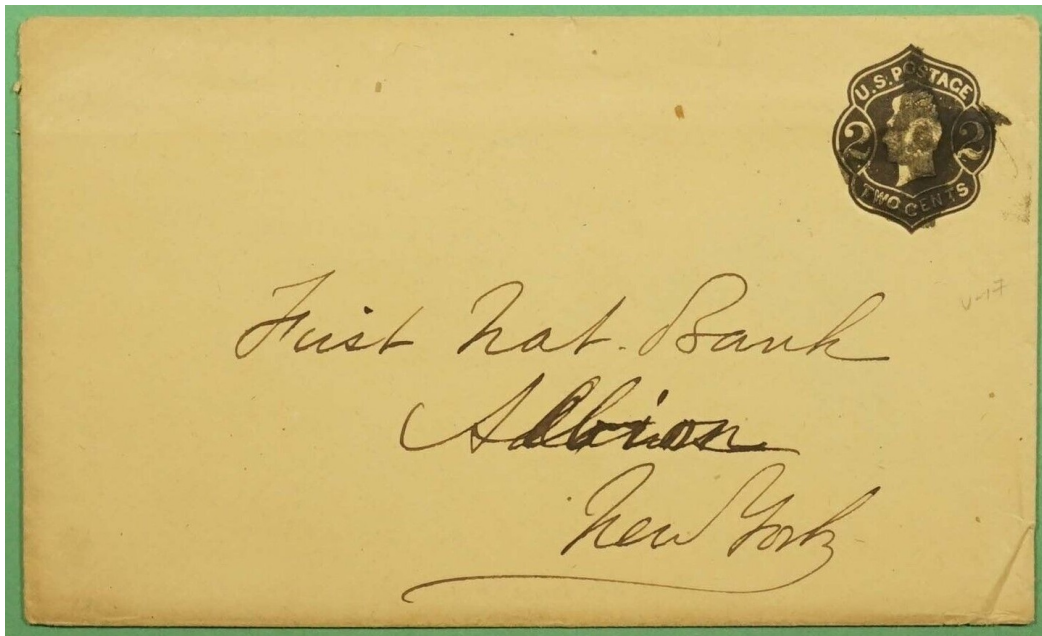 U.S. POSTAGE
2 2
TWO CENTS
U-17
First Nat. Bank
Albion
New York